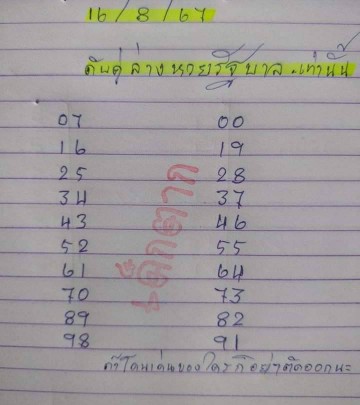 16/8/67
ดับคู่ล่างหวยรัฐบาลเท่านั้น
07 00
16 19
25 28
34 37
43 46
52 55
61 64
70 73
89 82
98 91
เด็กตาก
ถ้าโดนเด่นของใครก็อย่าตัดออกนะ